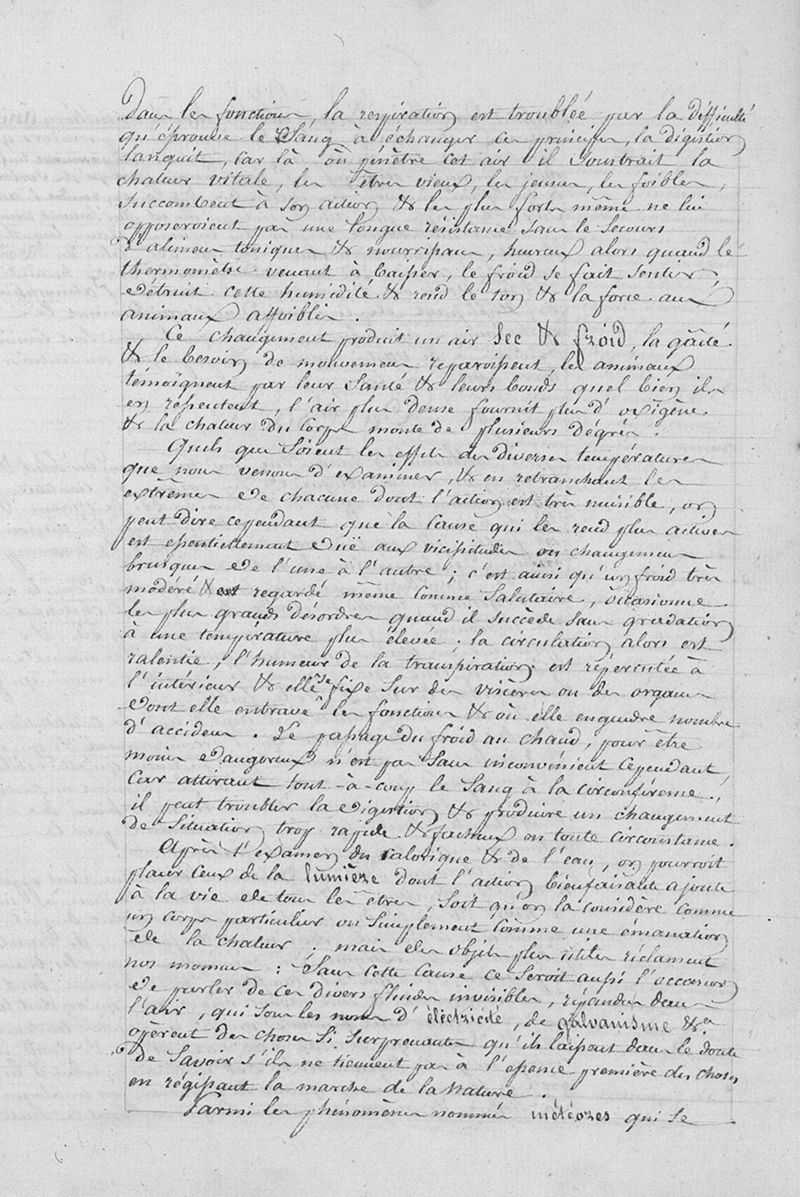 Dans les fonctions, la respiration est troublée par la difficulté
qu'éprouve le Sang à échanger ces principes, la digestion
languit, car là où pénètre cet air il soustrait la
chaleur vitale, les êtres vieux, les jeunes, les foibles,
succombent à son action & les plus forts même ne lui
opposeroient pas une longue résistance sans le secours
d'alimens toniques & nourrissans, heureux alors quand le
thermomètre venant à baisser, le froid se fait sentir
détruit cette humidité & rend le ton & la force aux
animaux affoiblis.
Ce changement produit un air sec & froid, la gaité
& le besoin de mouvemens reparoissent, les animaux
témoignent par leur santé & leurs bonds quel bien ils
en resentent, l'air plus dense fournit plus d'oxigène
& la chaleur du corps monte de plusieurs dégrés.
Quels que soient les effets des diverses températures
que nous venons d'examiner, & en retranchant les
extrêmes de chacune dont l'action est très nuisible, on
peut dire cependant que la cause qui les rend plus actives
est essentiellement düe aux vicissitudes ou changemens
brusques de l'une à l'autre; c'est ainsi qu'un froid très
modéré & regardé même comme salutaire, occasionne
les plus grands désordres quand il succède sans gradation
à une température plus élevée; la circulation alors est
ralentie, l'humeur de la transpiration est répercutée à
l'intérieur & elle se fixe sur des viscères ou des organes
dont elle entrave les fonctions & où elle engendre nombre
d'accidens. Le passage du froid au chaud, pour être
moins dangereux n'est pas sans inconvenient cependant,
car attirant tout-à-coup le Sang à la circonférence,
il peut troubler la digestion & produire un changement
de situation trop rapide & facheux en toute circonstance.
Après l'examen du calorique & de l'eau, on pourroit
placer ceux de la lumière dont l'action bienfaisante ajoute
à la vie de tous les êtres, soit qu'on la considère comme
un corps particulier ou simplement comme une émanation
de la chaleur; mais des objets plus utiles réclament
nos momens: Sans cette cause ce seroit aussi l'occasion
de parler de ces divers fluides invisibles, répandus dans
l'air, qui sous les noms d'électricité, de galvanisme &ca
opèrent des choses si surprenantes qu'ils laissent dans le doute
de savoir s'ils ne tiennent pas à l'essence première des choses
en régissant la marche de la Nature.
Parmi les phénomènes nommés météores qui se